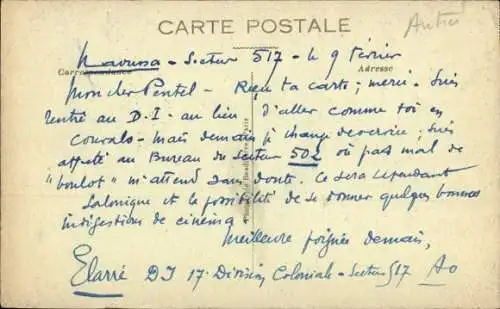 Autres
CARTE POSTALE
Naoussa - Secteur 517 - le 9 février
Correspondance Adresse
Mon cher Pentel - Reçu ta carte; merci. Suis
rentré au D.I - au lieu d'aller comme toi en
- mais demain je change de ; suis
affecté au Bureau du Secteur 502 où pas mal de
"boulot" m'attend sans doute. Ce sera cependant
Salonique et la possibilité de se donner quelques bonnes
indigestions de cinéma
Meilleure poignée de main,
DI 17e Division Coloniale - Secteur 517 AO